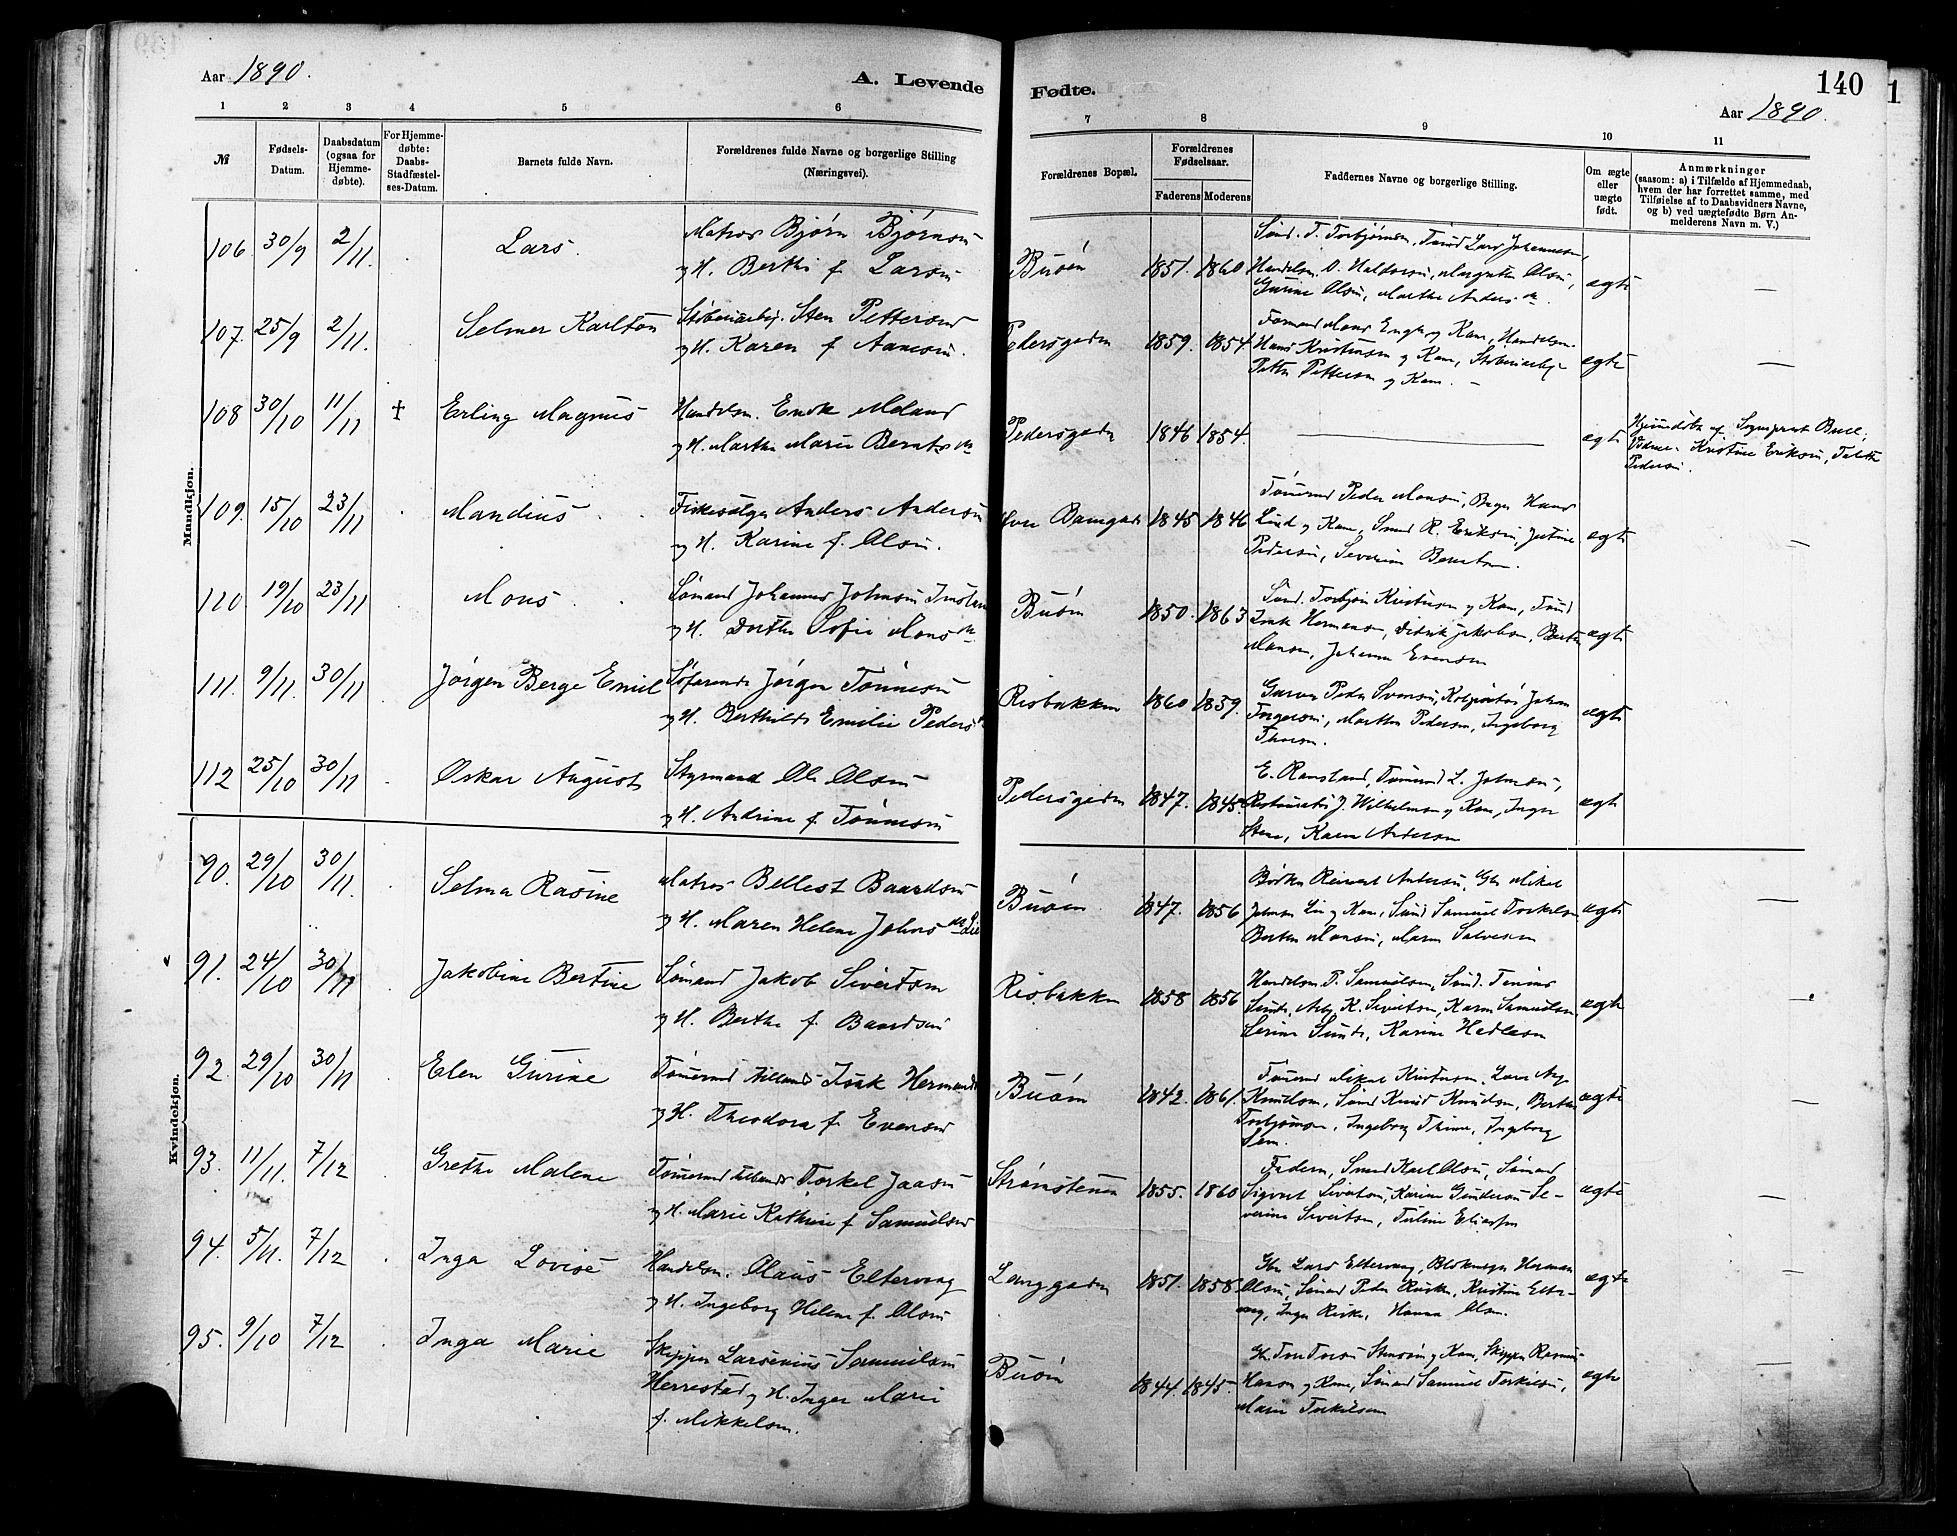 Aar 1890.
A. Levende
Fødte.
140
1
Aar 1890.
1 2 3 4 5 6 7 8 9 10 11
№
Fødsels-
Datum.
Daabsdatum
(ogsaa for
Hjemme-
døbte).
For Hjemme-
døbte:
Daabs-
Stadfæstel-
ses-Datum.
Barnets fulde Navn.
Forældrenes fulde Navne og borgerlige Stilling
(Næringsvei).
Forældrenes Bopæl.
Forældrenes
Fødselsaar.
Faderens Moderens
Faddernes Navne og borgerlige Stilling.
Om ægte
eller
uægte
født.
Anmærkninger
(saasom: a) i Tilfælde af Hjemmedaab,
hvem der har forrettet samme, med
Tilføielse af to Daabsvidners Navne,
og b) ved uægtefødte Børn An-
melderens Navn m. V.)
Mandkjøn.
106 30/9 2/11. Lars. Matros Bjørn Bjørnsen
og H. Berthe f. Larsen
Buøen 1851. 1860 Lars Johannesen,
Handelsm. O. Haldorsen, Margrethe Olsen,
Gurine Olsen, Marthe Andersdr.
ægte —
107. 25/9 2/11. Selmer Karlton Støberiarb. Sten Pettersen
og H. Karen f. Aanesen.
Pedersgaden 1859. 1854 Formand Mons Enge og Kone, Handelsm.
Hans Kristensen og Kone, Støberiarb.
Petter Pettersen og Kone. —
ægte —
108 30/10 11/11 † Erling Magnus Handelsm. Enok Meland
og H. Marthe Marie Berntsdr
Pedersgaden 1846 1854. ægte Hjemmedøbt af Sognepræst Bull.
Vidner. Kristine Eriksen,
Pedersen.
109. 15/10 23/11 Mandius Fiskesælger Anders Andersen
og H. Karine f. Olsen.
1845 1846 Tømmermd Peder Monsen, Bager Hans
Lund og Kone, Smed R. Eriksen, Justine
Pedersen, Severin Berntsen.
ægte —
110 19/10 23/11 Mons Sømand Johannes Johnsen
og H. Dorthe Sofie Monsdr
Buøen 1850. 1863 Torbjørn Kristensen og Kone,
Isak Hermansen, Didrik Jakobsen, Berte
Monsen, Johanne Evensen
ægte
111. 9/11. 30/11 Jørgen Berge Emil Søfarende Jørgen Tønnesen
og H. Berthilde Emilie Pedersdr
Risbakken 1860 1859. Garver Peder Svensen, Johan
Torgersen, Marthe Pedersen, Ingeborg
Thorsen.
ægte
112 25/10 30/11 Oskar August Styrmand Ole Olsen
og H. Andrine f. Tønnesen
Pedersgaden 1847. 1845 E. Ramsland, Tømmermd L. Johnsen,
Restauratør J. Wilhelmsen og Kone, Inger
Stene, Karen Andersen
ægte
Kvindekjøn.
90. 29/10 30/11. Selma Rasine Matros Bellest Baardsen
og H. Maren Helene Johnsdr Lie
Buøen. 1847. 1856 Bødker Reinert Andersen, Mikal
Johnsen Lie og Kone, Samuel Torkelsen
Berthe Monsen, Maren Salvesen
ægte —
91. 24/10 30/11 Jakobine Bertine Sømand Jakob Sivertsen
og H. Berthe f. Baardsen
Risbakken 1858 1856 Handelsm. P. Samuelsen, Tønnes
Sunde, Arb. K. Sivertsen, Karen Samuelsen
Serine Sunde, Karine Hedlesen
ægte
92. 29/10 30/11 Elen Gurine Tømmermd Isak Hermansen
og H. Theodora f. Evensen
Buøen 1842. 1861. Tømmermd Mikal Kristensen, Lars
Knudsen, Smed Knud Knudsen, Berthe
Torbjørnsen, Ingeborg Thime, Ingeborg
Sem.
ægte —
93. 11/11. 7/12 Grethe Malene Tømmermd Torkel Jaasen
og H. Marie Kathrine f. Samuelsen
Strømstenen 1855. 1860 Faderen, Smed Karl Olsen, Sømand
Sigvart Sivertsen, Karine Gundersen, Se-
verine Sivertsen, Tuline Eliassen
ægte —
94. 5/11. 7/12 Inga Lovise Handelsm. Olaus Eltervaag
og H. Ingeborg Helene f. Olsen
Langgaden 1851. 1858 Lars Eltervaag, Herman
Olsen, Sømand Peder Riske, Kristine Elter-
vaag, Inger Riske, Hanna Olsen.
ægte —
95. 9/10 7/12 Inga Marie Skipper Larsenius Samuelsen
Herrestad og H. Inger Marie
f. Mikkelsen.
Buøen 1844. 1845. Stensøen og Kone, Skipper Rasmus
Hansen og Kone, Sømand Samuel Torkelsen,
Maren Torkelsen
ægte —